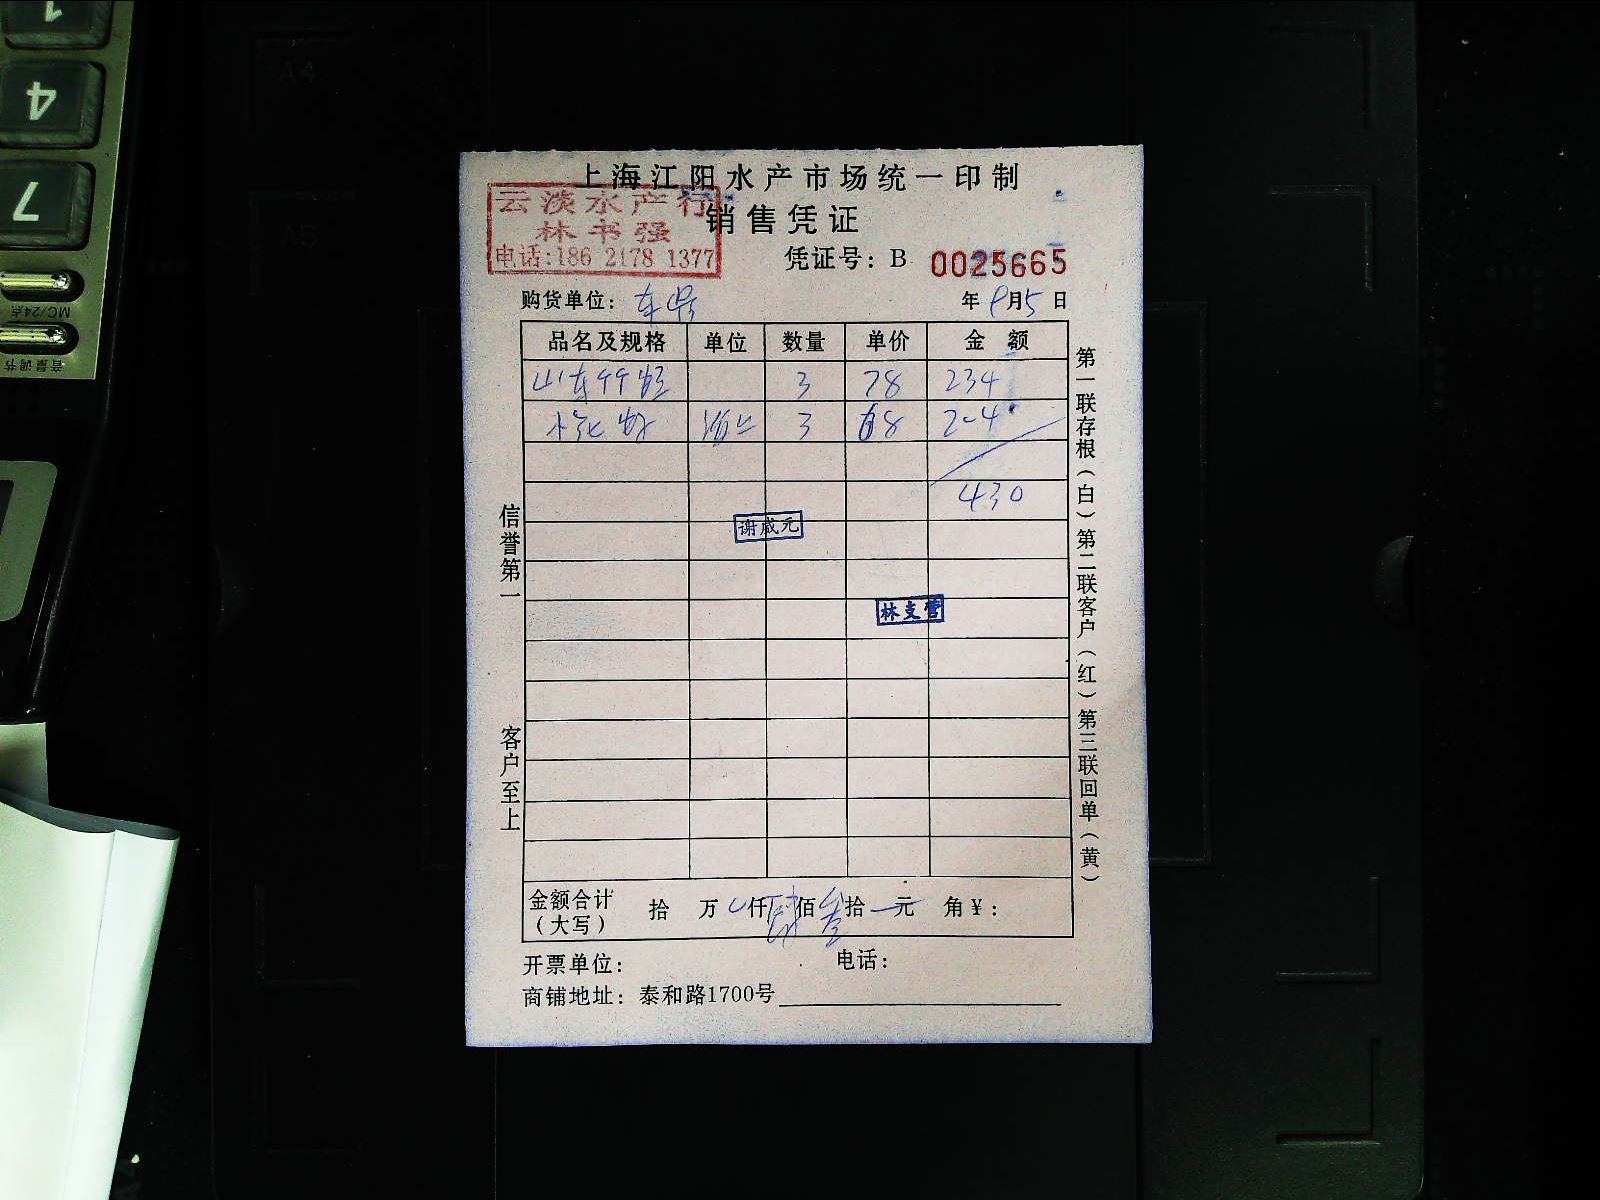 上海江阳水产市场统一印制
云淡水产行
林书强
电话:186 2178 1377
销售凭证
凭证号: B 0025665
购货单位:
年 9月5日
品名及规格 单位 数量 单价 金 额
山东 3 78 234
3 68 204
430
谢咸元
林支营
信誉第一
客户至上
第一联存根(白)第二联客户(红)第三联回单(黄)
金额合计(大写) 拾 万 仟 肆佰 叁拾 元 角 ¥:
开票单位: 电话:
商铺地址: 泰和路1700号
1
4
7
MC/24点
音量调节
A4
A5